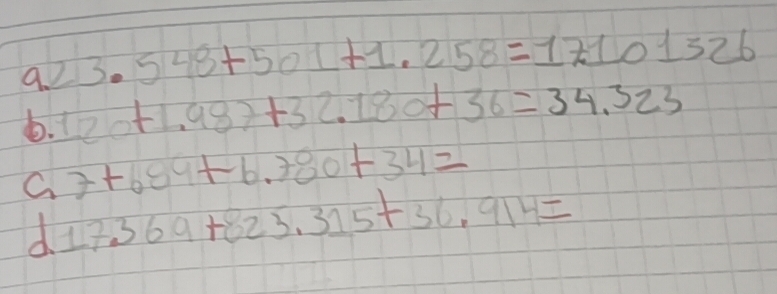 a.23.548+501+1.258=17101326
b.120+1.987+32.180+36=34.323
c.7+689+6.780+34=
d.17.369+823.315+36.914=